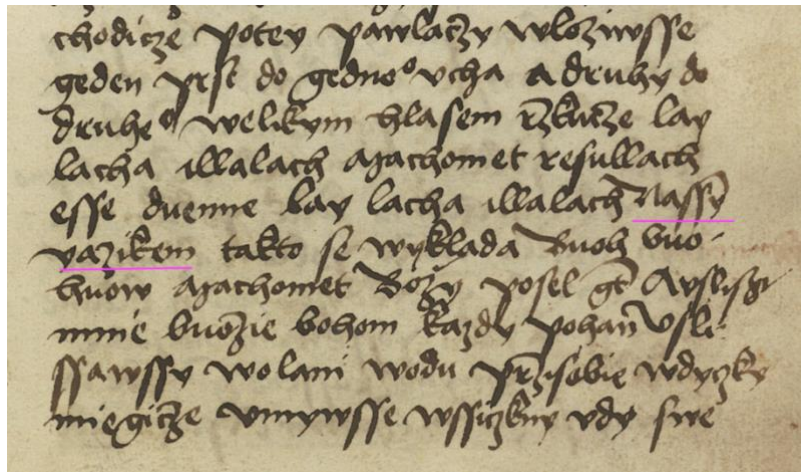 chodicze potey pawlaczy wloziwsse
geden prst do gedneo vcha a druhy do
druheo welikym hlasem rzkucze lay
lacha illalach Machomet resullach
esse duenne lay lacha illalach Nassy
yazikem takto se wyklada Buoh buo-
huow Machomet Bozy posel gt A vslissi
mnie buozie bohom kazdy pohan Vsli-
ssawssy wolani wodu przi sobie wdyczky
miegicze vmywsse wssiczkny vdy swe